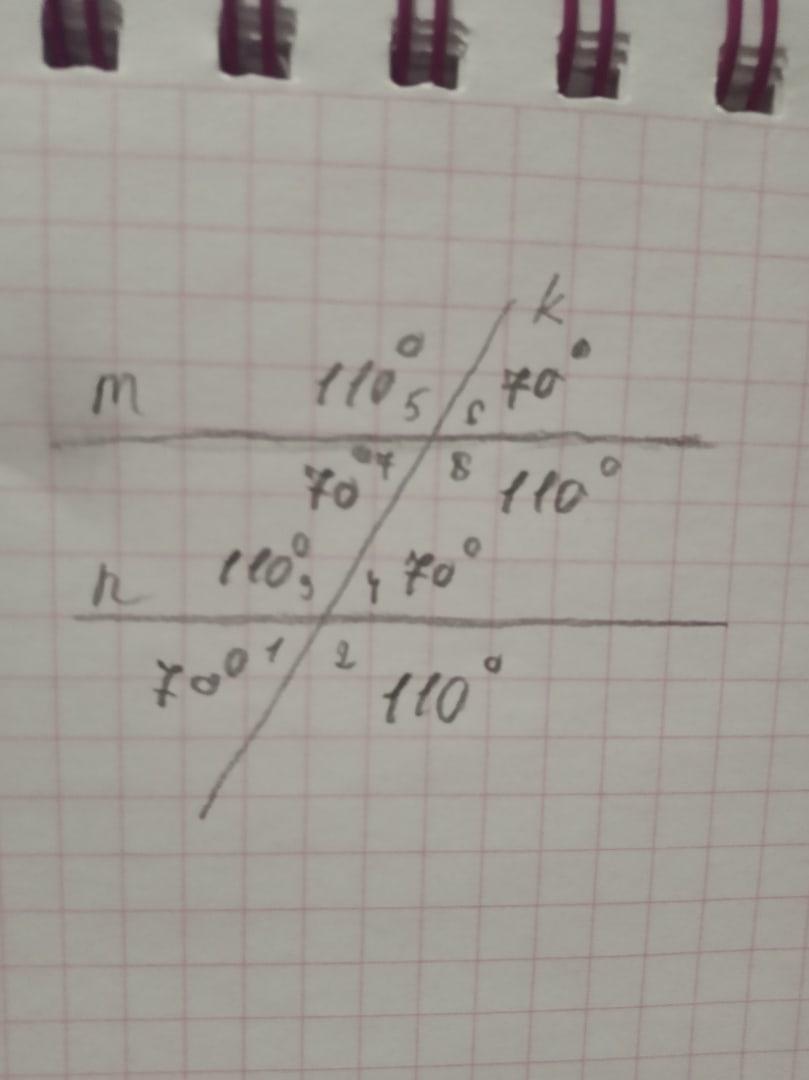 k
110° 5 6 70°
m
70° 7 8 110°
n 110° 3 4 70°
70° 1 2 110°